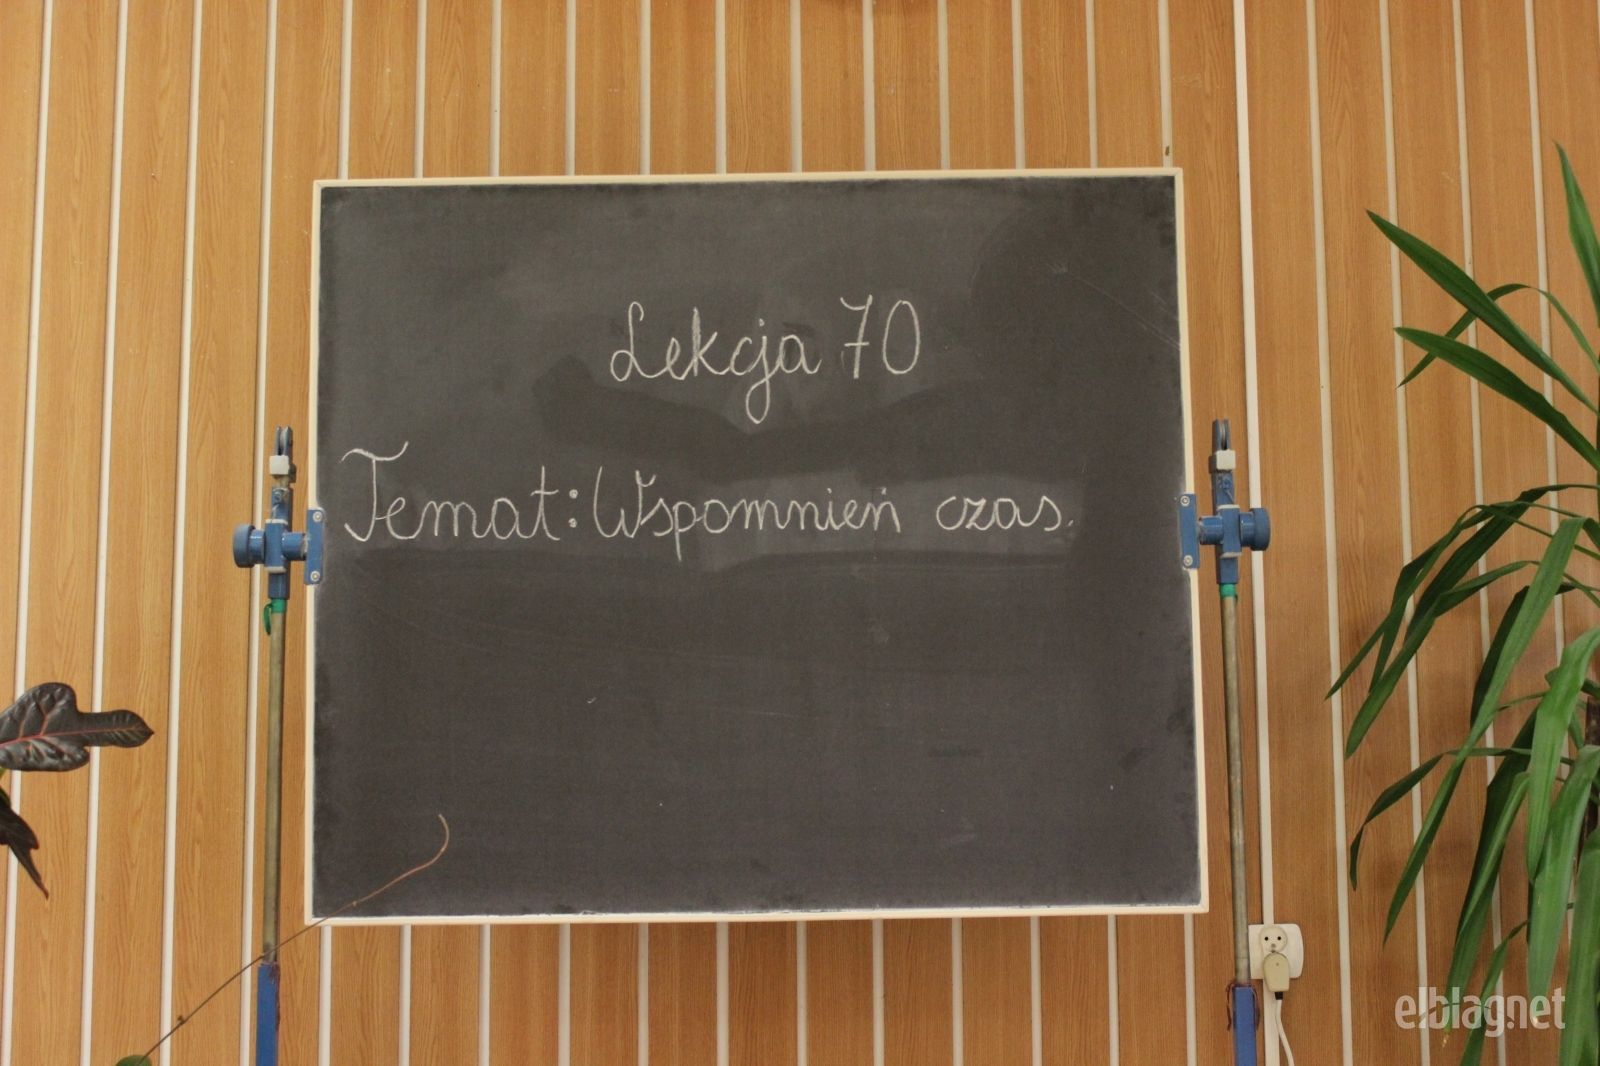 Lekcja 70
Temat: Wspomnień czas.
elblag.net